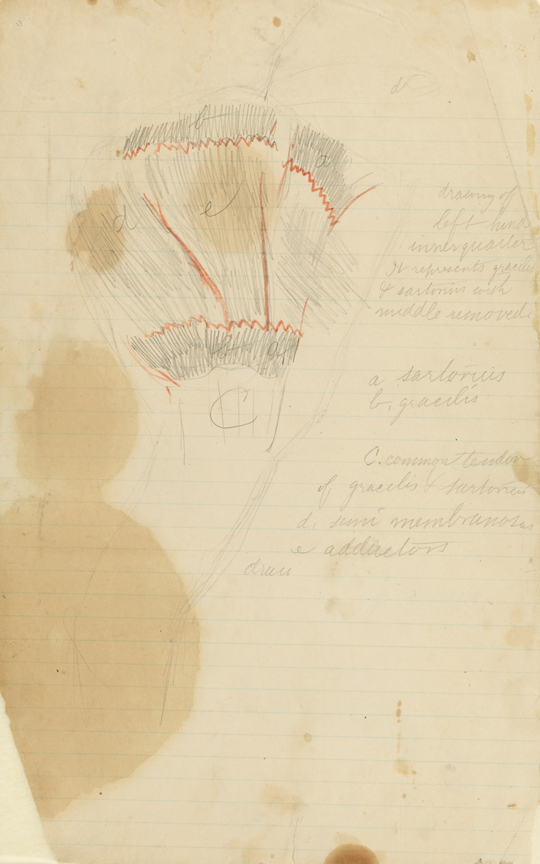 b
a
d
e
b
a
C
drawing of
left hind
inner quarter
It represents gracilis
& sartorius with
middle removed.
a sartorius
b. gracilis
C. common tendon
of gracilis & sartorius
d. semi membranosus
e adductors
draw